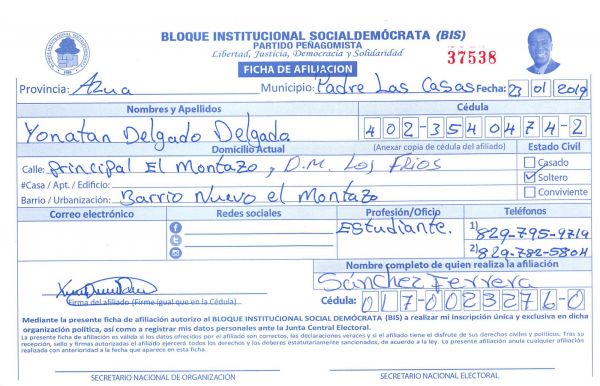 BLOQUE INSTITUCIONAL SOCIALDEMÓCRATA (BIS)
PARTIDO PEÑAGOMISTA
Libertad, Justicia, Democracia y Solidaridad
37538
FICHA DE AFILIACION
Provincia: Azua Municipio: Padre Las Casas Fecha: 23 01 2019
Nombres y Apellidos Cédula
Yonatan Delgado Delgado 402-3540474-2
Domicilio Actual (Anexar copia de cédula del afiliado) Estado Civil
Calle: principal El Montazo, D.M. Los Frios Casado
#Casa / Apt. / Edificio: Soltero
Barrio / Urbanización: Barrio Nuevo el Montazo Conviviente
Correo electrónico Redes sociales Profesión/Oficio Teléfonos
Estudiante. 1) 829-795-9719
2) 829-782-5804
Nombre completo de quien realiza la afiliación
Sánchez Ferrera
Firma del afiliado (Firme igual que en la Cédula) Cédula: 017-0023276-0
Mediante la presente ficha de afiliación autorizo al BLOQUE INSTITUCIONAL SOCIAL DEMÓCRATA (BIS) a realizar mi inscripción única y exclusiva en dicha
organización política, así como a registrar mis datos personales ante la Junta Central Electoral.
La presente ficha de afiliación es válida si los datos ofrecidos por el afiliado son correctos, las declaraciones veraces y si el afiliado tiene el disfrute de sus derechos civiles y políticos. Tras su
recepción, sello y firmas autorizadas el afiliado ejercerá todos los derechos y los deberes estatutariamente sancionados, de acuerdo a la ley. La presente afiliación anula cualquier afiliación
realizada con anterioridad a la fecha que aparece en esta ficha.
SECRETARIO NACIONAL DE ORGANIZACIÓN SECRETARIO NACIONAL ELECTORAL